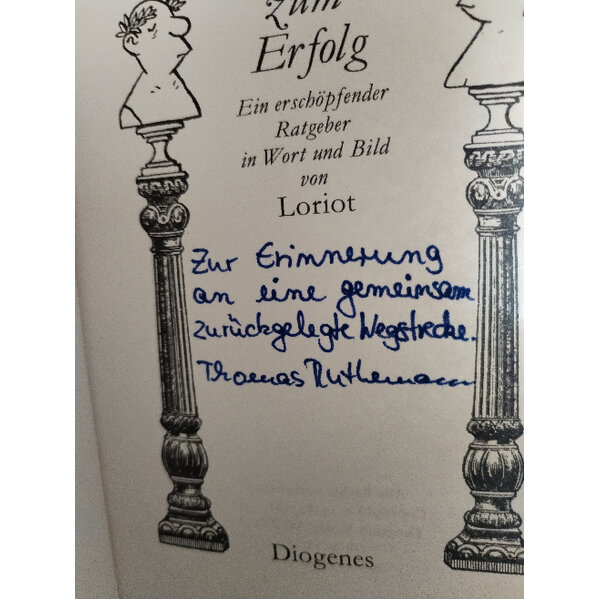 zum
Erfolg
Ein erschöpfender
Ratgeber
in Wort und Bild
von
Loriot
Zur Erinnerung
an eine gemeinsam
zurückgelegte Wegstrecke.
Thomas Ruthemann
Diogenes